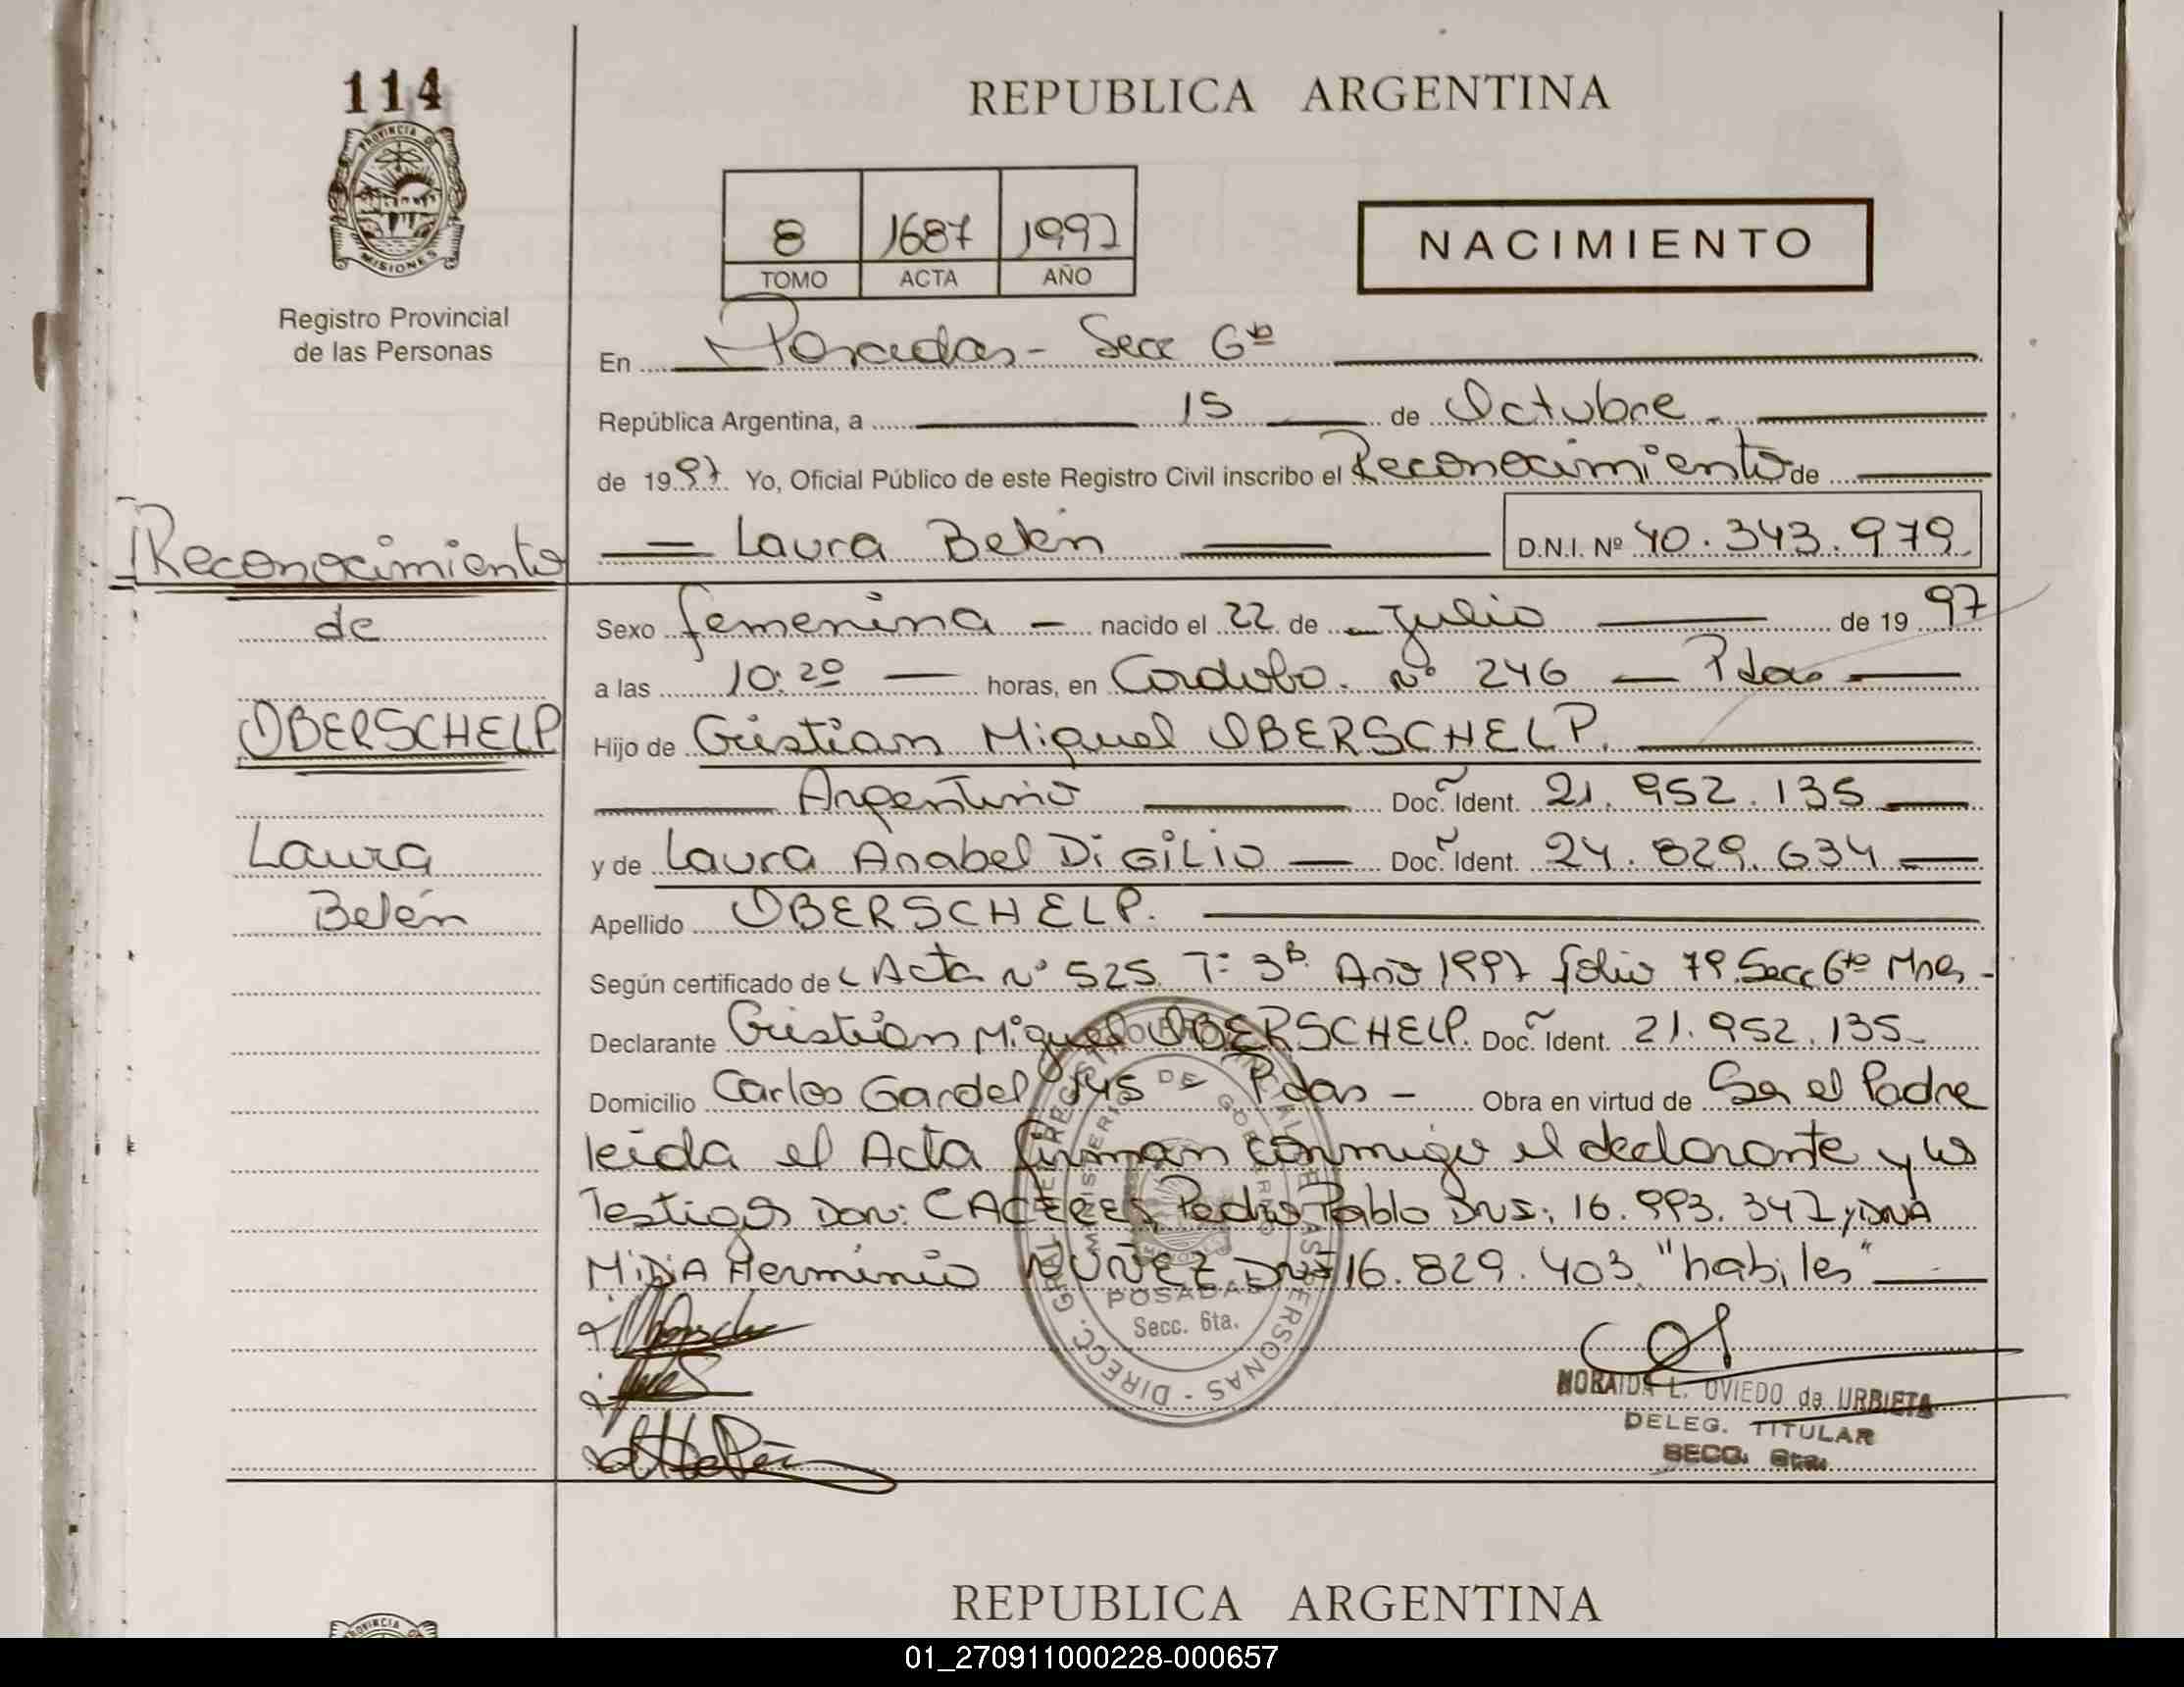 114
PROVINCIA DE
MISIONES
Registro Provincial
de las Personas
REPUBLICA ARGENTINA
8 1687 1997
TOMO ACTA AÑO
NACIMIENTO
En Posadas - Secc 6ta
República Argentina, a 15 de Octubre
de 1997 Yo, Oficial Público de este Registro Civil inscribo el Reconocimiento de
Laura Belén D.N.I. Nº 40.343.979
Reconocimiento
de
OBERSCHELP
Laura
Belén
Sexo femenina - nacido el 22 de Julio de 1997
a las 10:20 horas, en Cordoba. Nº 246 - Pdas
Hijo de Cristian Miguel OBERSCHELP.
Argentino Doc. Ident. 21.952.135
y de Laura Anabel Di GiLio Doc. Ident. 24.829.634
Apellido OBERSCHELP.
Según certificado de Acta Nº 525 Tº 3º Año 1997 folio 79 Secc 6ta Mnes -
Declarante Cristian Miguel OBERSCHELP. Doc. Ident. 21.952.135
Domicilio Carlos Gardel Pdas - Obra en virtud de Ser el Padre
leida el Acta firman conmigo el declarante y los
Testigos Don: CACERES Pedro Pablo DNI: 16.993.347 y DÑA
Herminia NUÑEZ DNI 16.829.403 "habiles"
POSADAS
Secc. 6ta.
NORAIDA L. OVIEDO de URBIETA
DELEG. TITULAR
SECC. 6ta.
REPUBLICA ARGENTINA
01_270911000228-000657